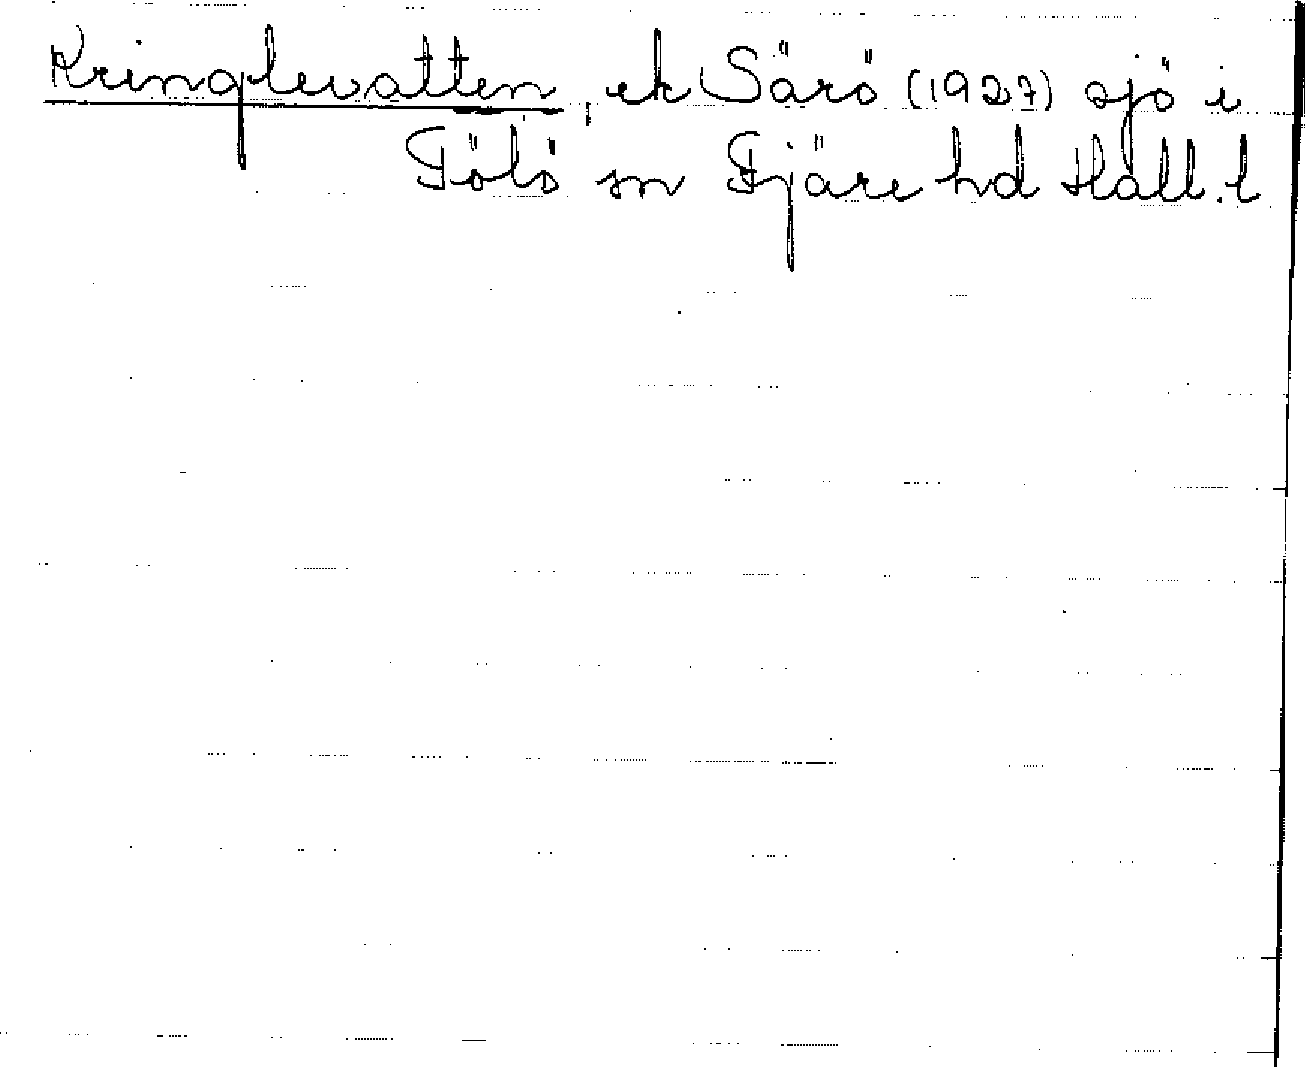 Kringlevatten, ek Särö (1927) sjö i
Fölö sn Fjäre hd Hall. l